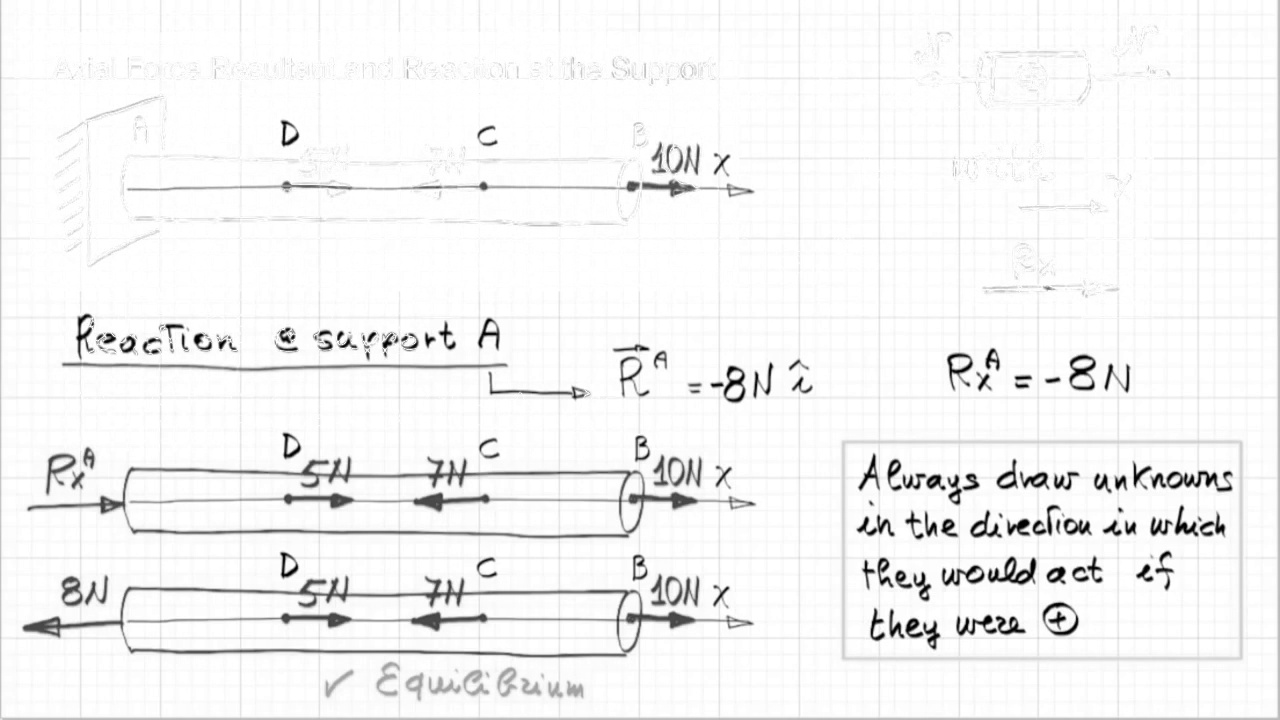 Axial Force Resultant and Reaction at the Support
N N
A D 5N 7N C B 10N x
with x
Rx
Reaction @ support A
R^A = -8N î
Rx^A = -8N
Rx^A D 5N 7N C B 10N x
8N D 5N 7N C B 10N x
✓ Equilibrium
Always draw unknowns
in the direction in which
they would act if
they were ⊕